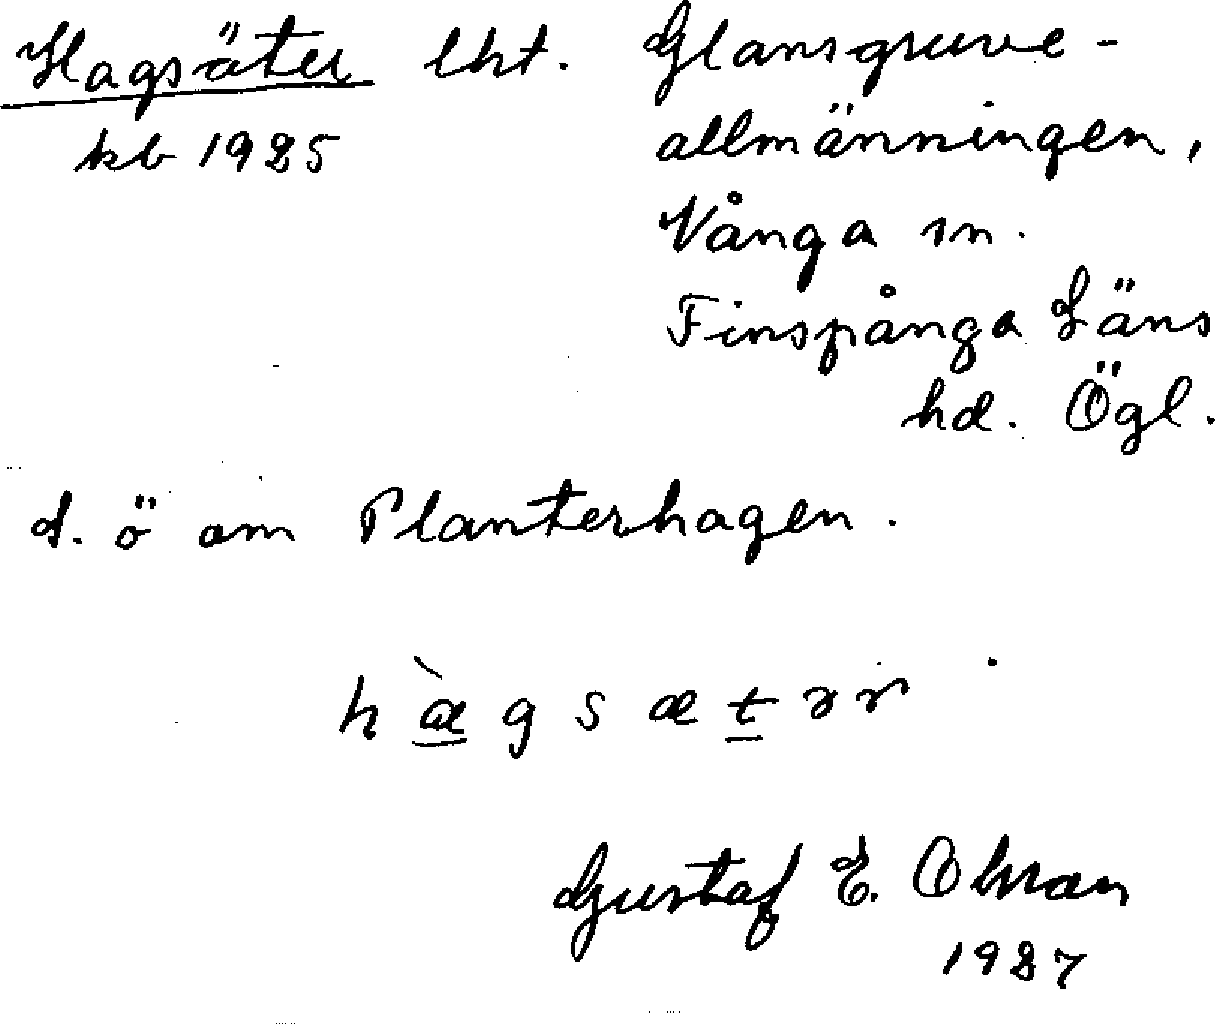 Hagsäter lht. Glansgruve-
kb 1925 allmänningen,
Vånga sn.
Finspånga Läns
hd. Ögl.
S. ö om Planterhagen.
Gustaf E.
1927